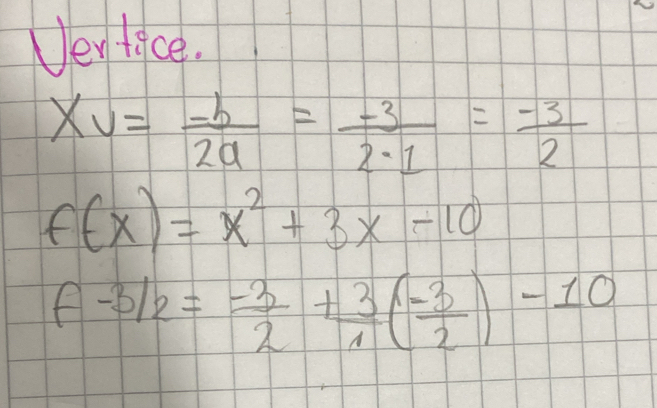 Vertice.
Xv = -b/2a = -3/2·1 = -3/2
f(x) = x² + 3x - 10
f -3/2 = -3/2 + 3/1 (-3/2) - 10